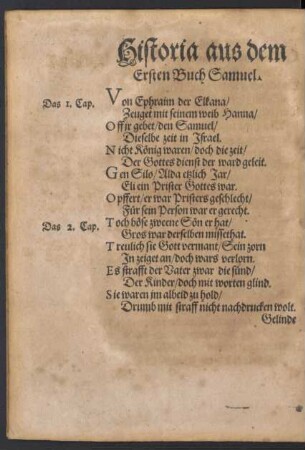 Historia aus dem
Ersten Buch Samuel.
Das 1. Cap.
Von Ephraim der Elkana/
Zeuget mit seinem weib Hanna/
Off jr gebet/den Samuel/
Dieselbe zeit in Israel.
Nicht König waren/doch die zeit/
Der Gottes dienst der ward geleit.
Gen Silo/Alda etzlich Jar/
Eli ein Prister Gottes war.
Opffert/er war Pristers geschlecht/
Für sein Person war er gerecht.
Das 2. Cap.
Toch böse zweene Sön er hat/
Gros war derselben missethat.
Treulich sie Gott vermant/Sein zorn
In zeiget an/doch wars verlorn.
Es strafft der Vater zwar die sünd/
Der Kinder/doch mit worten glind.
Sie waren jm albeid zu hold/
Drumb mit straff nicht nachdrucken wolt.
Gelinde